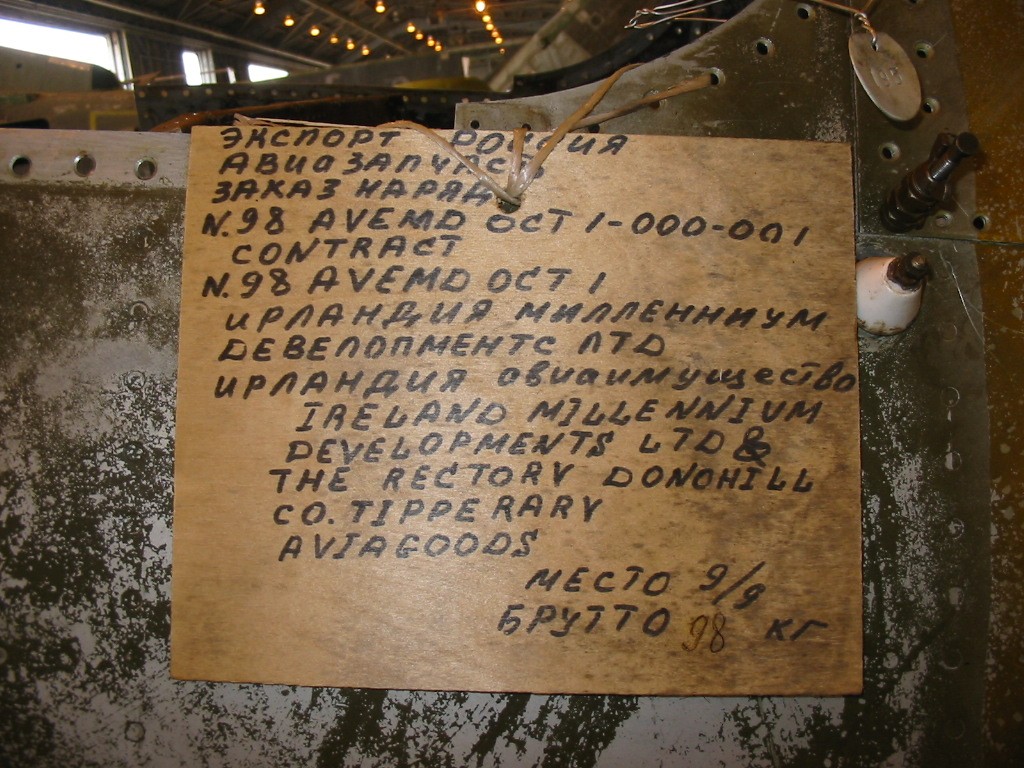 ЭКСПОРТ РОССИЯ
АВИАЗАПЧАСТ
ЗАКАЗ НАРЯД
N.98 AVEMD OCT 1-000-001
CONTRACT
N.98 AVEMD OCT 1
ИРЛАНДИЯ МИЛЛЕННИУМ
ДЕВЕЛОПМЕНТС ЛТД
ИРЛАНДИЯ авиаимущество
IRELAND MILLENNIUM
DEVELOPMENTS LTD &
THE RECTORY DONOHILL
CO. TIPPERARY
AVIAGOODS
МЕСТО 9/9
БРУТТО 98 КГ